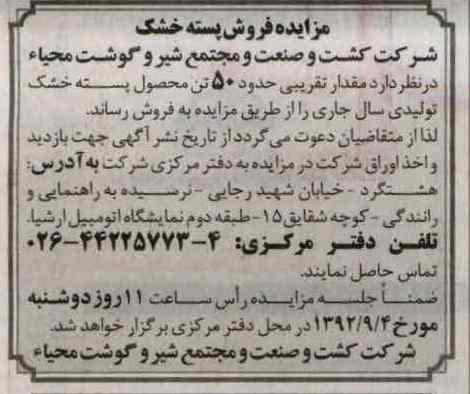 مزایده فروش پسته خشک
شرکت کشت و صنعت و مجتمع شیر و گوشت محیاء
درنظر دارد مقدار تقریبی حدود ۵۰ تن محصول پسته خشک
تولیدی سال جاری را از طریق مزایده به فروش رساند.
لذا از متقاضیان دعوت می گردد از تاریخ نشر آگهی جهت بازدید
و اخذ اوراق شرکت در مزایده به دفتر مرکزی شرکت به آدرس:
هشتگرد - خیابان شهید رجایی - نرسیده به راهنمایی و
رانندگی - کوچه شقایق ۱۵ - طبقه دوم نمایشگاه اتومبیل ارشیا.
تلفن دفتر مرکزی: ۴-۴۴۲۲۵۷۷۳-۰۲۶
تماس حاصل نمایند.
ضمناً جلسه مزایده رأس ساعت ۱۱ روز دوشنبه
مورخ ۱۳۹۲/۹/۴ در محل دفتر مرکزی برگزار خواهد شد.
شرکت کشت و صنعت و مجتمع شیر و گوشت محیاء